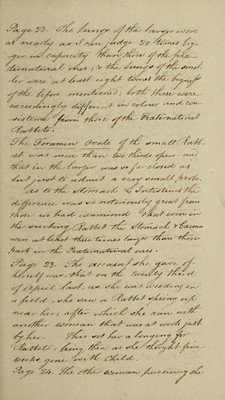 Page 22. The Lungs of the larger were
as nearly as I can judge 20 times big-
ger in capacity than those of the præ-
ternatural ones, & the lungs of the smal-
ler were at least eight times the bigness
of the before mentioned; both these were
exceedingly different in colour and con-
sistence from those of the Præternatural
Rabbits.
The Foramen Ovale of the small Rabb-
et was more than two thirds open: and
that in the larger was so far closed as
but just to admit a very small probe.
as to the Stomach & Intestines the
difference was so notoriously great from
those we had examined that even in
the sucking Rabbet the Stomach & Cæcum
were at least three times larger than those
parts in the Præternatural ones.
Page 23. The account she gave of
herself was, that on the twenty third
of April last, as she was weeding in
a field, she saw a Rabbet spring up
near her; after which she ran with
another woman that was at work just
by her. This set her a longing for
Rabbets being then as she thought five
weeks gone with Child.
Page 24. The other woman perceiving she